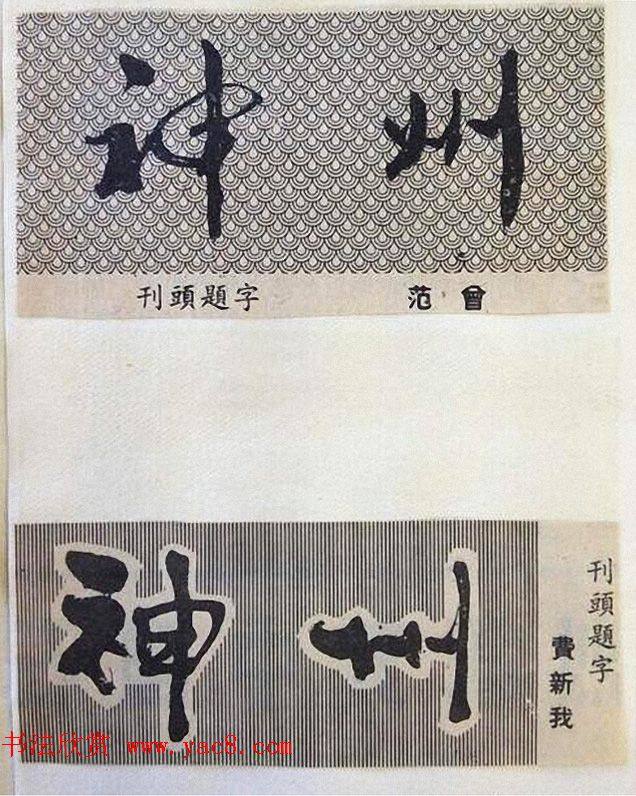 神州
刊頭題字 范曾
神州
刊頭題字
費新我
书法欣赏 www.yac8.com